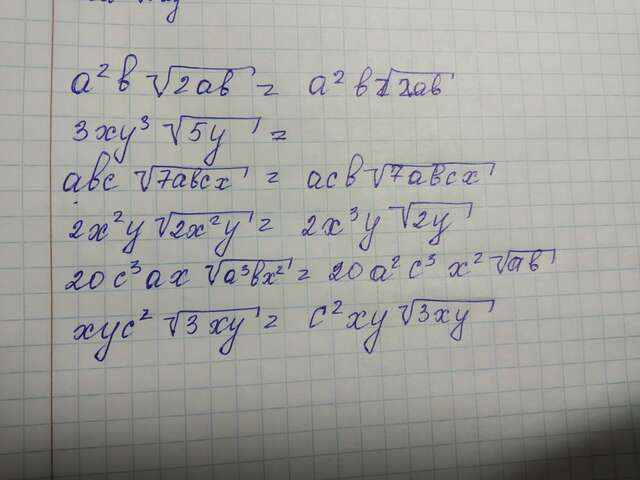 a²b √2ab = a²b √2ab
3xy³ √5y =
abc √7abcx = acb √7abcx
2x²y √2x²y = 2x³y √2y
20c³ax √a³bx² = 20a²c³x² √ab
xyc² √3xy = c²xy √3xy